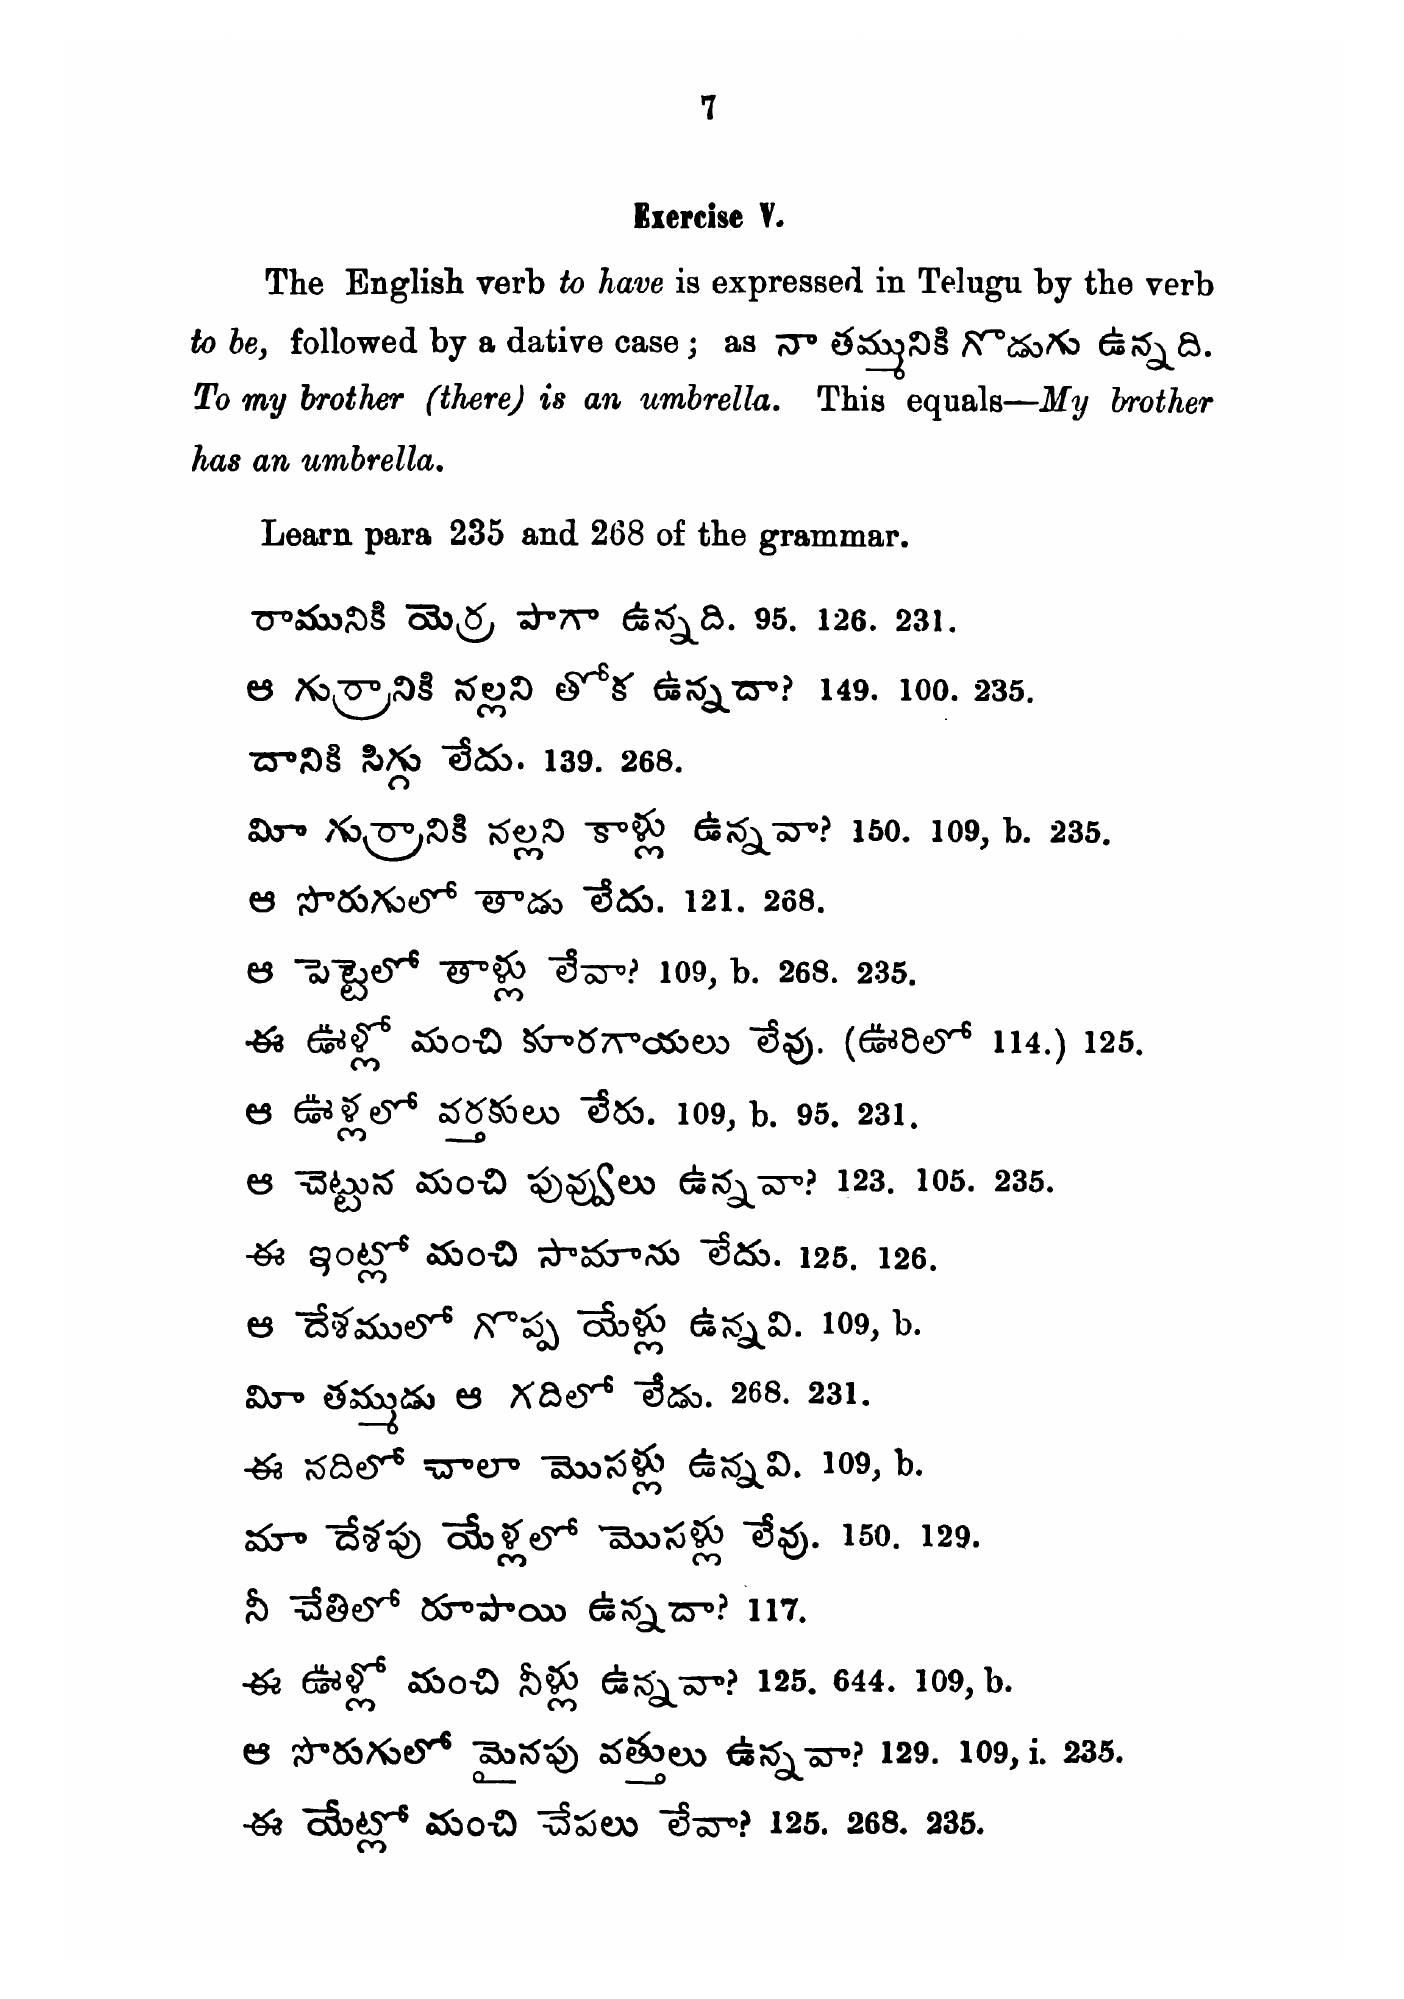 7
Exercise V.
The English verb to have is expressed in Telugu by the verb
to be, followed by a dative case; as నా తమ్మునికి గొడుగు ఉన్నది.
To my brother (there) is an umbrella. This equals—My brother
has an umbrella.
Learn para 235 and 268 of the grammar.
రామునికి యెర్ర పాగా ఉన్నది. 95. 126. 231.
ఆ గుర్రానికి నల్లని తోక ఉన్నదా? 149. 100. 235.
దానికి సిగ్గు లేదు. 139. 268.
మీ గుర్రానికి నల్లని కాళ్లు ఉన్నవా? 150. 109, b. 235.
ఆ సొరుగులో తాడు లేదు. 121. 268.
ఆ పెట్టెలో తాళ్లు లేవా? 109, b. 268. 235.
ఈ ఊళ్లో మంచి కూరగాయలు లేవు. (ఊరిలో 114.) 125.
ఆ ఊళ్లలో వర్తకులు లేరు. 109, b. 95. 231.
ఆ చెట్టున మంచి పువ్వులు ఉన్నవా? 123. 105. 235.
ఈ ఇంట్లో మంచి సామాను లేదు. 125. 126.
ఆ దేశములో గొప్ప యేళ్లు ఉన్నవి. 109, b.
మీ తమ్ముడు ఆ గదిలో లేడు. 268. 231.
ఈ నదిలో చాలా మొసళ్లు ఉన్నవి. 109, b.
మా దేశపు యేళ్లలో మొసళ్లు లేవు. 150. 129.
నీ చేతిలో రూపాయి ఉన్నదా? 117.
ఈ ఊళ్లో మంచి నీళ్లు ఉన్నవా? 125. 644. 109, b.
ఆ సొరుగులో మైనపు వత్తులు ఉన్నవా? 129. 109, i. 235.
ఈ యేట్లో మంచి చేపలు లేవా? 125. 268. 235.